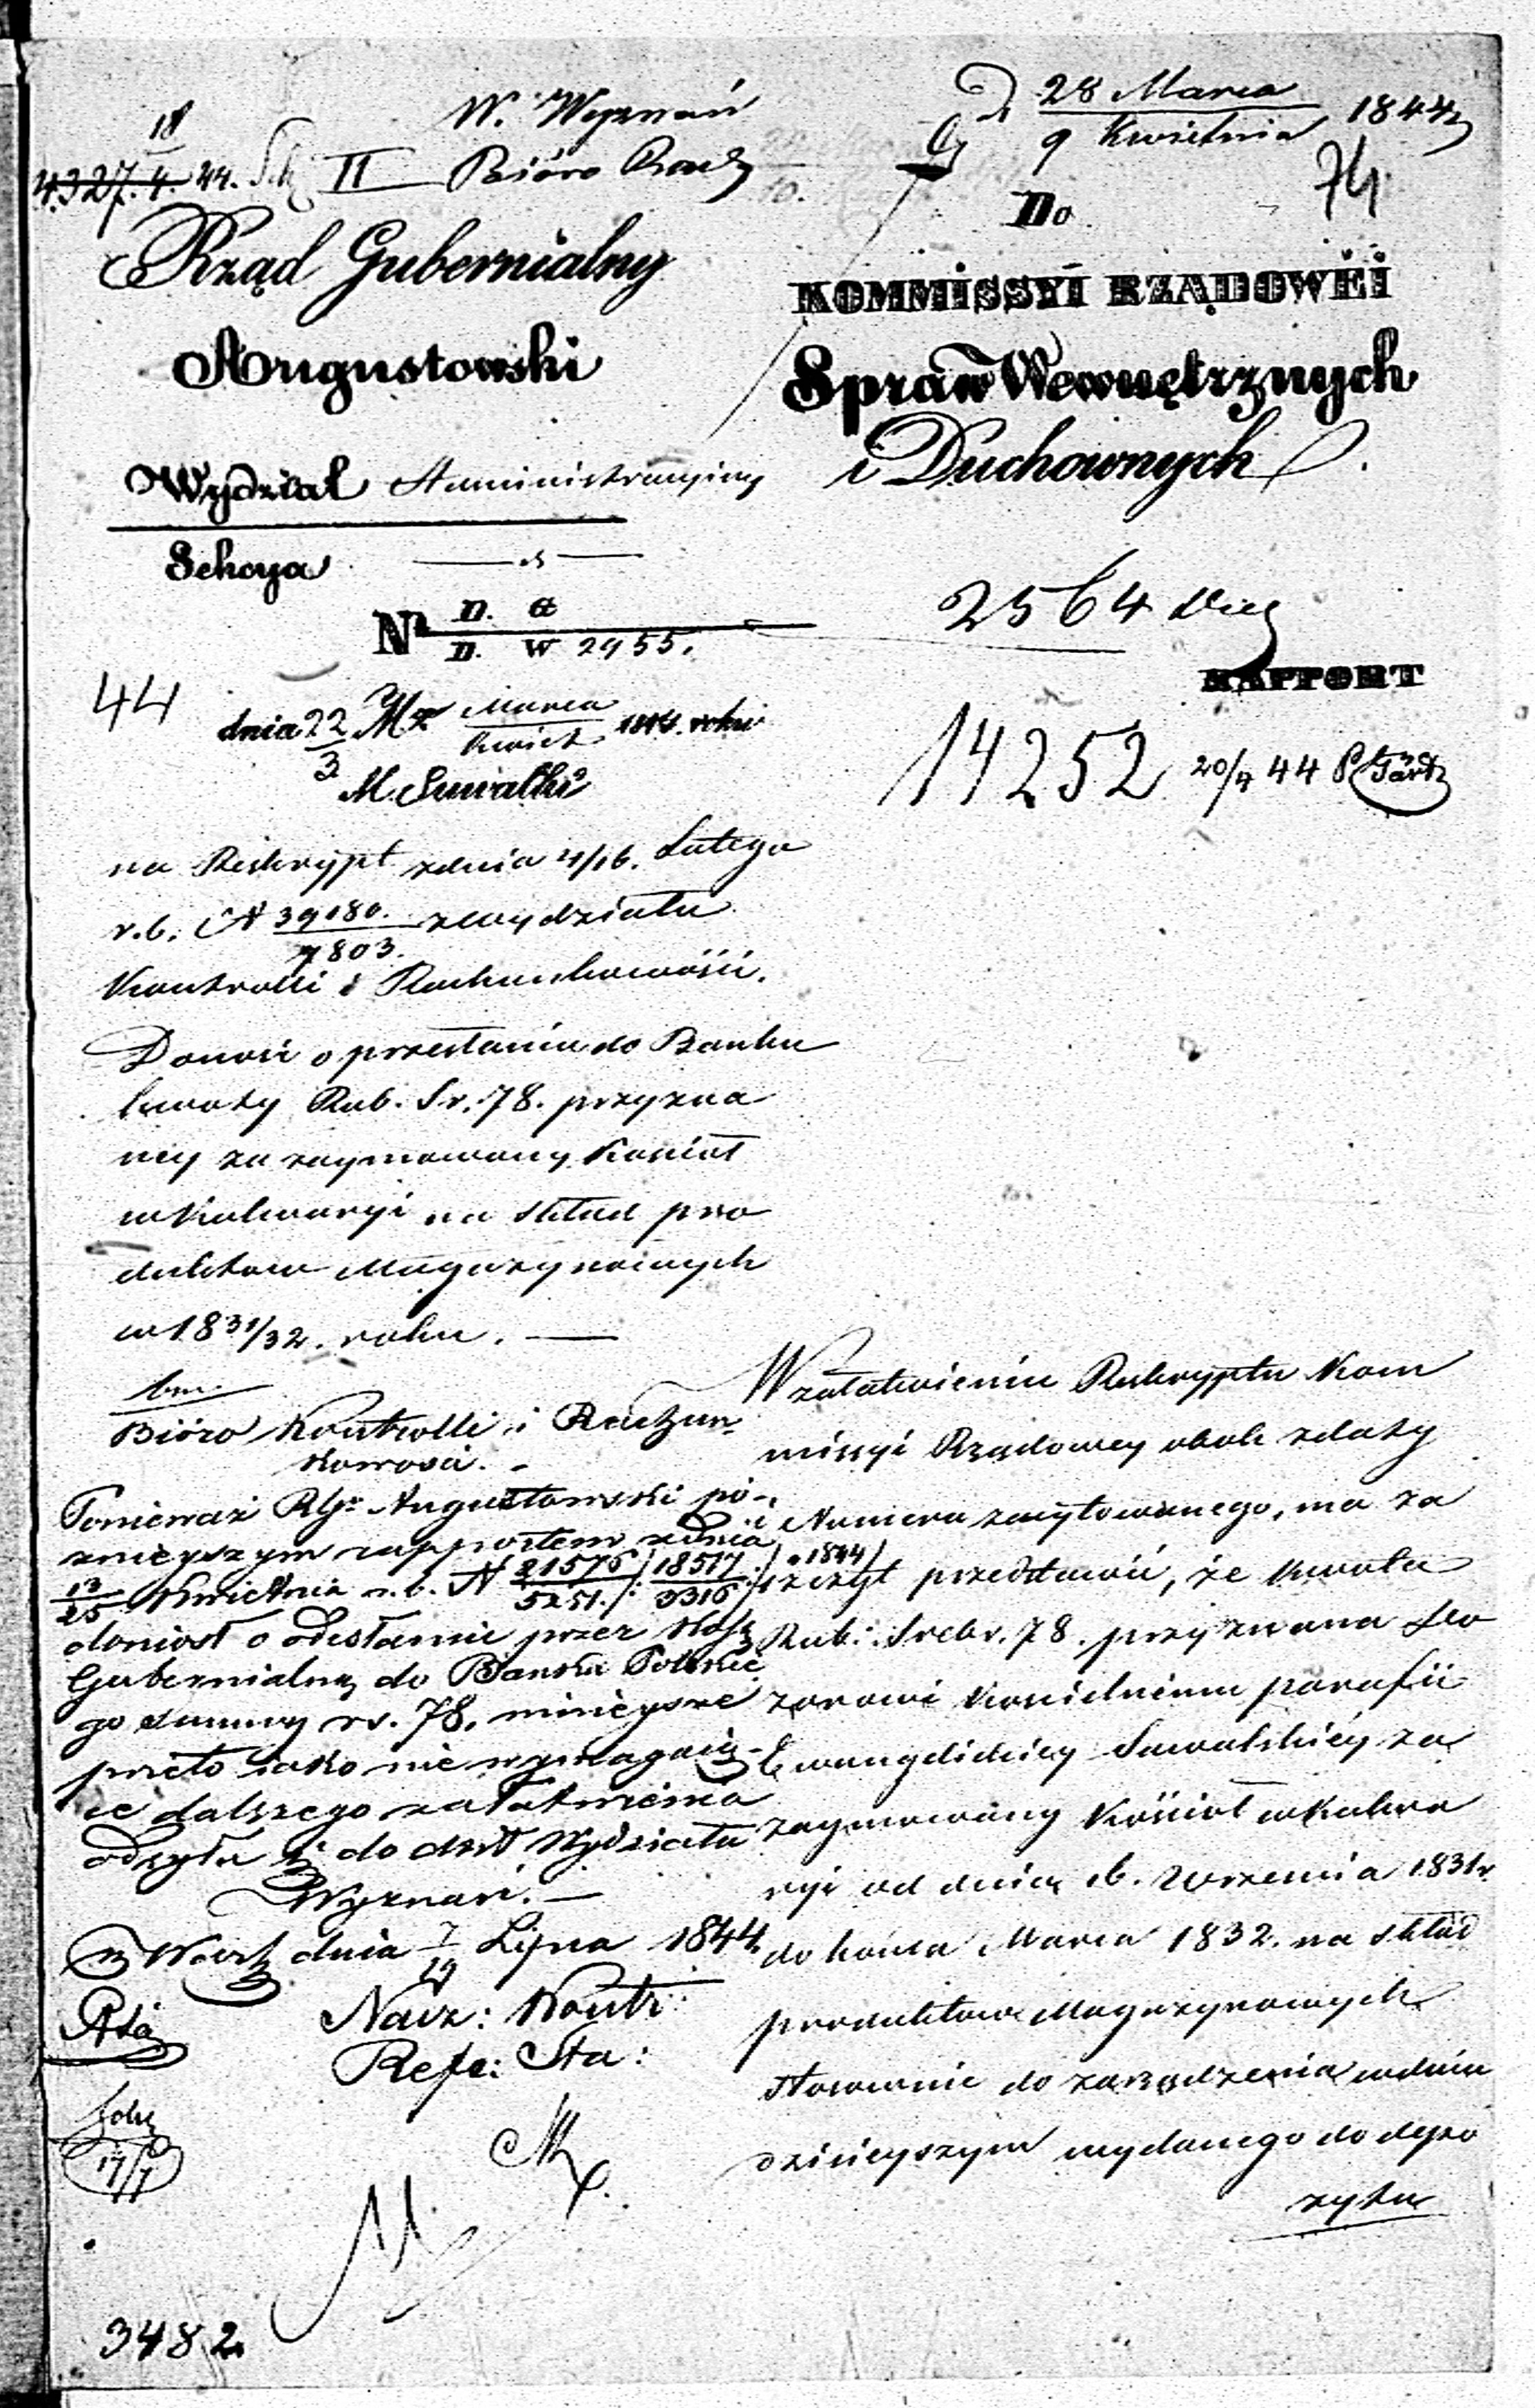 W. Wyznań
II Bióro Rach
18
4327. 4. 44.
d 28 Marca 1844
9 Kwietnia
74.
Rząd Gubernialny
Augustowski
Wydział Administracyjny
Sekcya
Nr D. G
D. W 2955.
44
dnia 22 Mca Marca 1844. roku
3 Kwiet
M. Suwałki
Do
KOMMISSYI RZĄDOWÉI
Spraw Wewnętrznych
i Duchownych
2564
RAPPORT
14252 20/4 44
na Reskrypt zdnia 4/16. Lutego
r. b. N 39180. zwydziału
7803.
Kontrolli i Rachunkowości.
Donosi o przesłaniu do Banku
kwoty Rub. Sr. 78. przyzna
ney za zaymowany Kościoł
w Kalwaryi na skład pro
duktow Magazynowych
w 18 31/32. roku.
Bióro Kontrolli i Rachun
kowości.
Ponieważ RGr Augustowski pó-
znieyszym rapportem zdnia
13/25 Kwietnia r. b. N 21576/5251. 18517/3316 1844
doniosł o odesłanie przez Kassę
Gubernialną do Banku Polskie
go summy rs. 78. ninieysze
przeto jako nie wymagaią-
ce dalszego załatwienia
odsyła się do akt Wydziału
Wyznań.
w Warsz dnia 7/19 Lipca 1844
Nacz: Kontr:
Refe: Sta:
17/7
3482
W załatwieniu Reskryptu Kom
missyi Rządowey obok zdaty
i Numeru zacytowanego, ma za
szczyt przedstawić, że kwota
Rub: Srebr. 78. przyznana Do
zorowi Kościelnemu parafii
Ewangelickiey Suwalskiéy za
zaymowany Kościoł w Kalwa
ryi od dnia 16. Września 1831 r.
do końca Marca 1832. na skład
produktow Magazynowych
stosownie do zarządzenia w dniu
dzisieyszym wydanego do depo
zytu